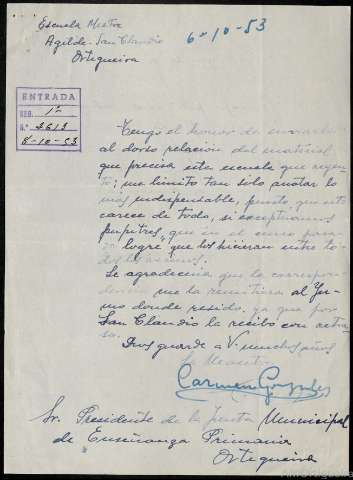 Escuela Mixta
Agilde - San Claudio
Ortigueira
6-10-53
ENTRADA
REG. 1º
N.º 2613
8-10-53
Tengo el honor de enviarle
al dorso relación del material
que precisa esta escuela que regen-
to; me limito tan solo anotar lo
mas indispensable, puesto que esta
carece de todo, si exceptuamos
pupitres, que en el curso pasa-
do logré que los hicieran entre to-
dos los vecinos.
Le agradecería que la correspon-
dencia me la remitiera al
donde resido, ya que por
San Claudio la recibo con retra-
so.
Dios guarde a V. muchos años
La Maestra
Carmen González
Sr. Presidente de la Junta Municipal
de Enseñanza Primaria
Ortigueira